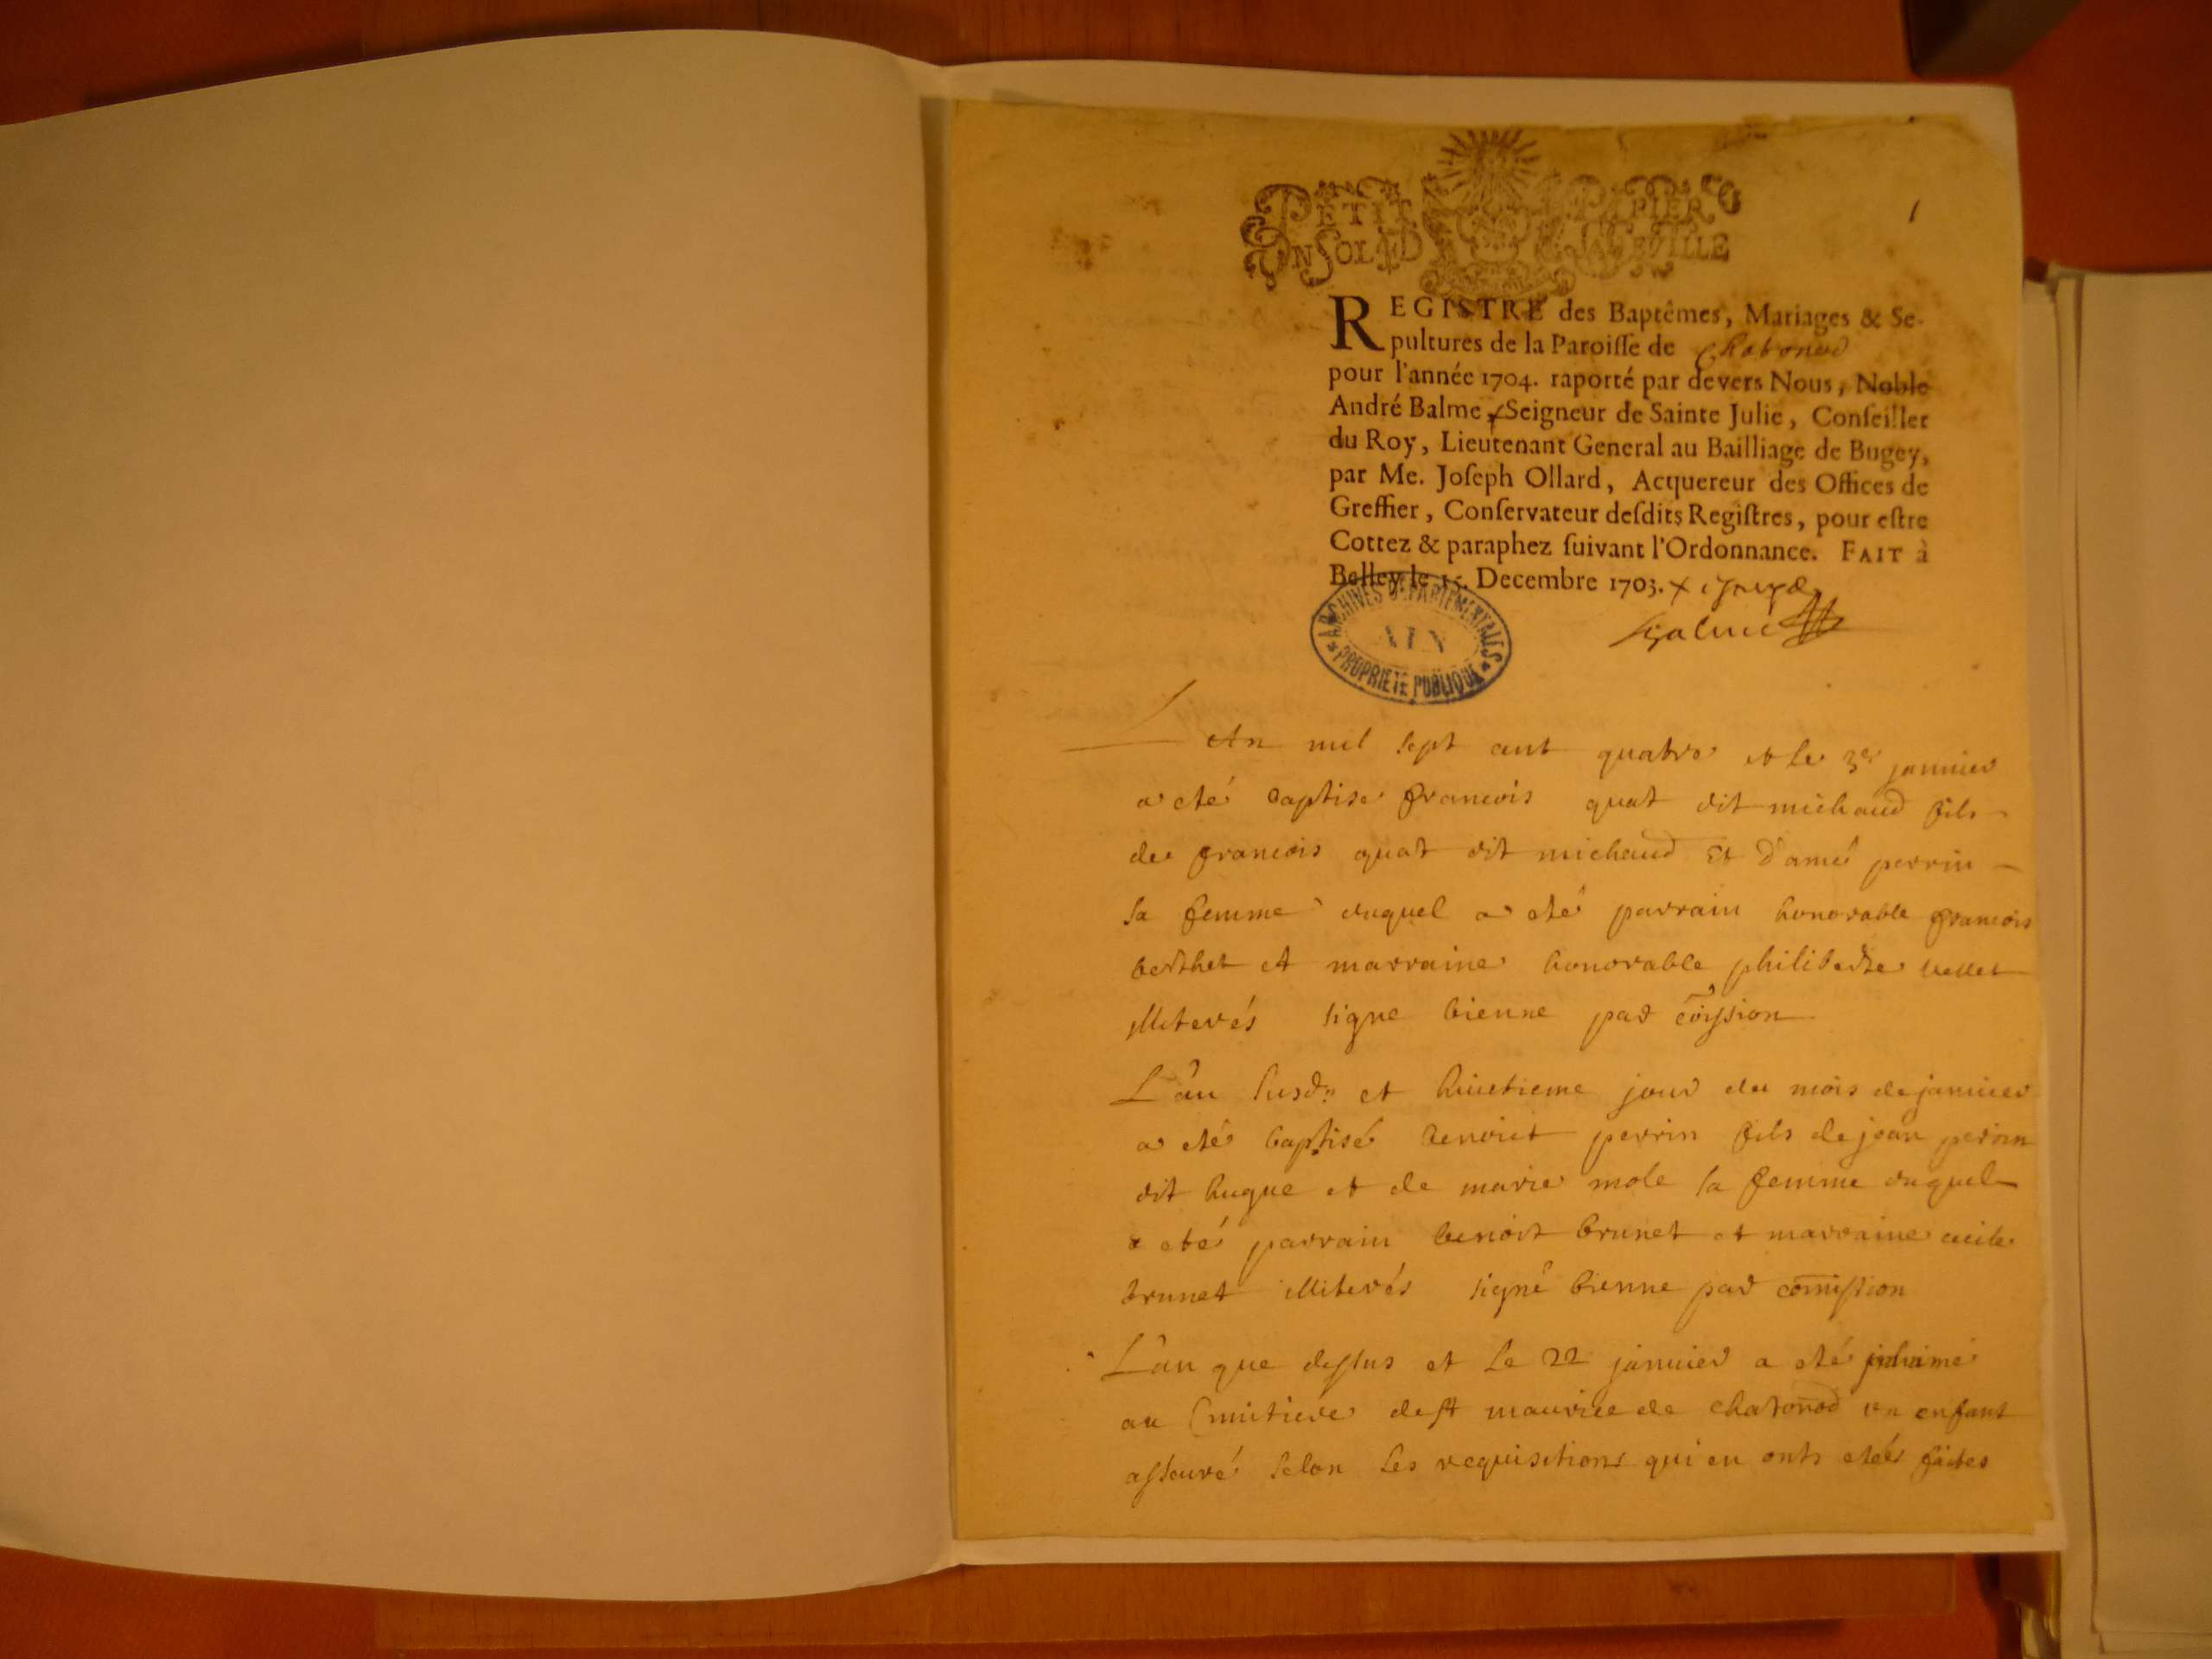 PETIT PAPIER
UN SOL LA FEVILLE
1
REGISTRE des Baptêmes, Mariages & Se-
pultures de la Paroisse de Chatonod
pour l'année 1704. raporté par devers Nous, Noble
André Balme, Seigneur de Sainte Julie, Conseiller
du Roy, Lieutenant General au Bailliage de Bugey,
par Me. Joseph Ollard, Acquereur des Offices de
Greffier, Conservateur desdits Registres, pour estre
Cottez & paraphez suivant l'Ordonnance. FAIT à
Belley le 15. Decembre 1703.
ARCHIVES DEPARTEMENTALES
AIN
PROPRIETE PUBLIQUE
Balme
L An mil sept cent quatre et le 3e janvier
a eté baptise francois quat dit michaud fils
de francois quat dit michaud et d'amé perrin
sa femme duquel a eté parrain honorable francois
berthet et marraine honorable philiberte
illiterés signe bienne par coission
L'an susd. et huictieme jour du mois de janvier
a eté baptisé benoict perrin fils de jean perrin
dit hugue et de marie mole sa femme duquel
a eté parrain benoist brunet et marraine cecile
brunet illiterés signé bienne par comission
L'an que dessus et le 22 janvier a eté inhumé
au Cmitiere de st maurice de chatonod un enfant
asseuré selon les requisitions qui en onts etées faites